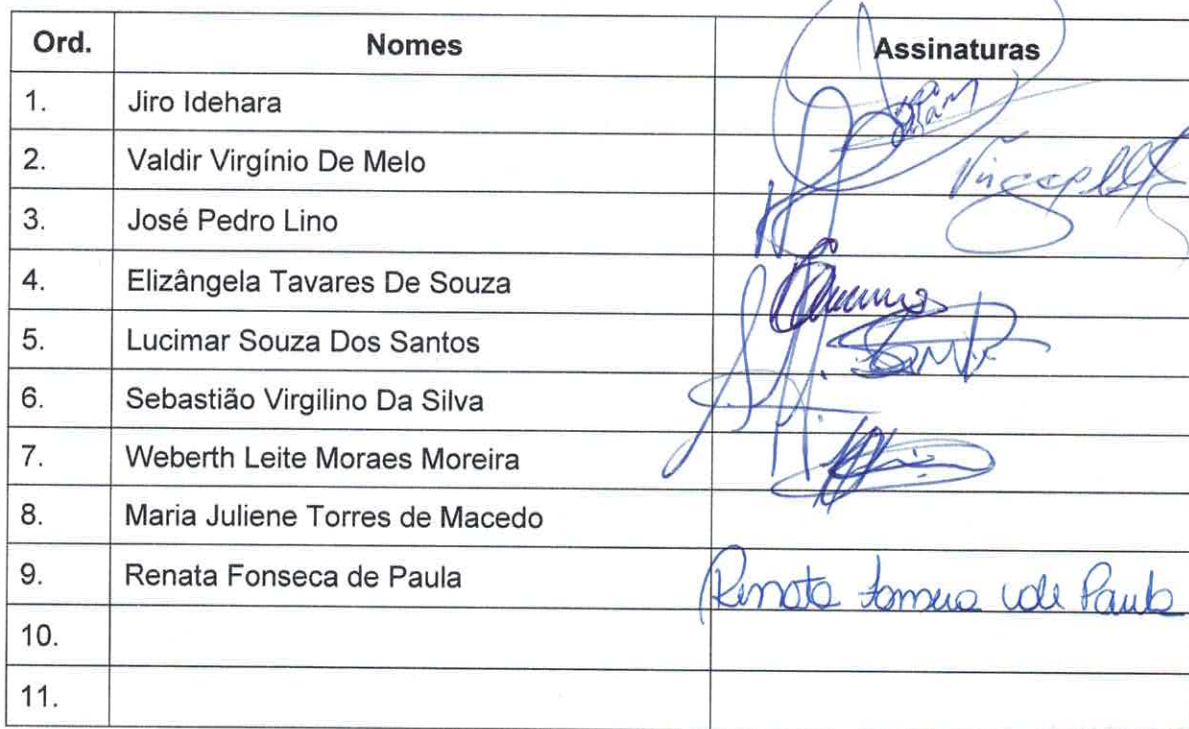 Ord. Nomes Assinaturas
1. Jiro Idehara
2. Valdir Virgínio De Melo
3. José Pedro Lino
4. Elizângela Tavares De Souza
5. Lucimar Souza Dos Santos
6. Sebastião Virgilino Da Silva
7. Weberth Leite Moraes Moreira
8. Maria Juliene Torres de Macedo
9. Renata Fonseca de Paula Renata Fonseca de Paula
10.
11.